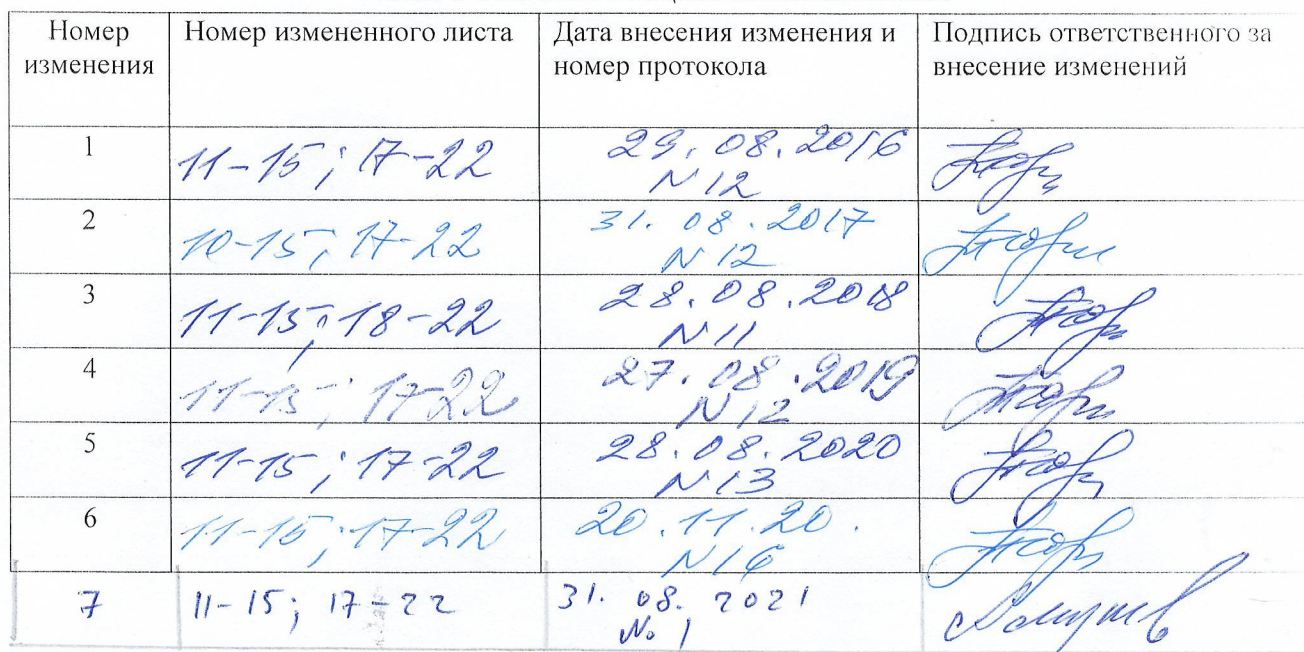 Номер изменения
Номер измененного листа
Дата внесения изменения и номер протокола
Подпись ответственного за внесение изменений
1
11-15; 17-22
29.08.2016
N 12
2
10-15; 17-22
31.08.2017
N 12
3
11-15; 18-22
28.08.2018
N 11
4
11-15; 17-22
27.08.2019
N 12
5
11-15; 17-22
28.08.2020
N 13
6
11-15; 17-22
20.11.20.
N 16
7
11-15; 17-22
31. 08. 2021
№ 1